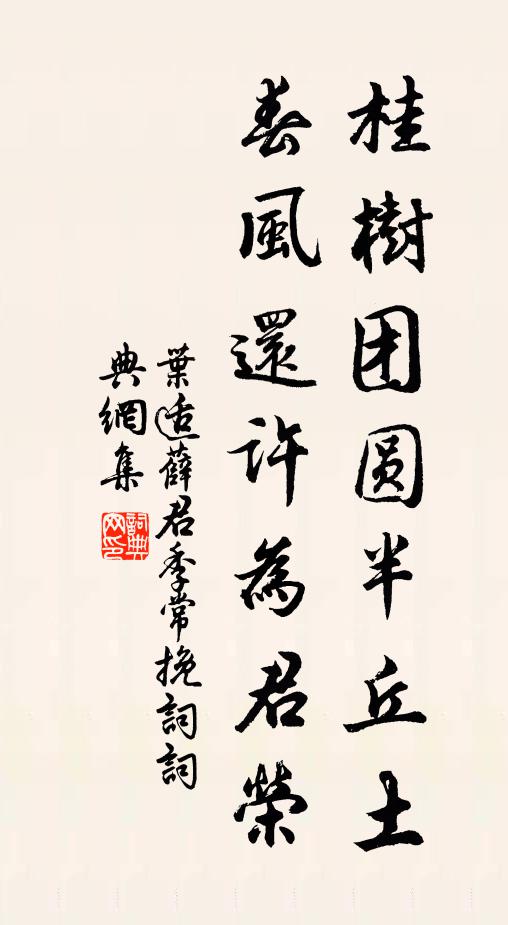 桂樹团圆半丘土
春風還許為君榮
葉適薛君季常挽詞詞
典網集
詞典
网印